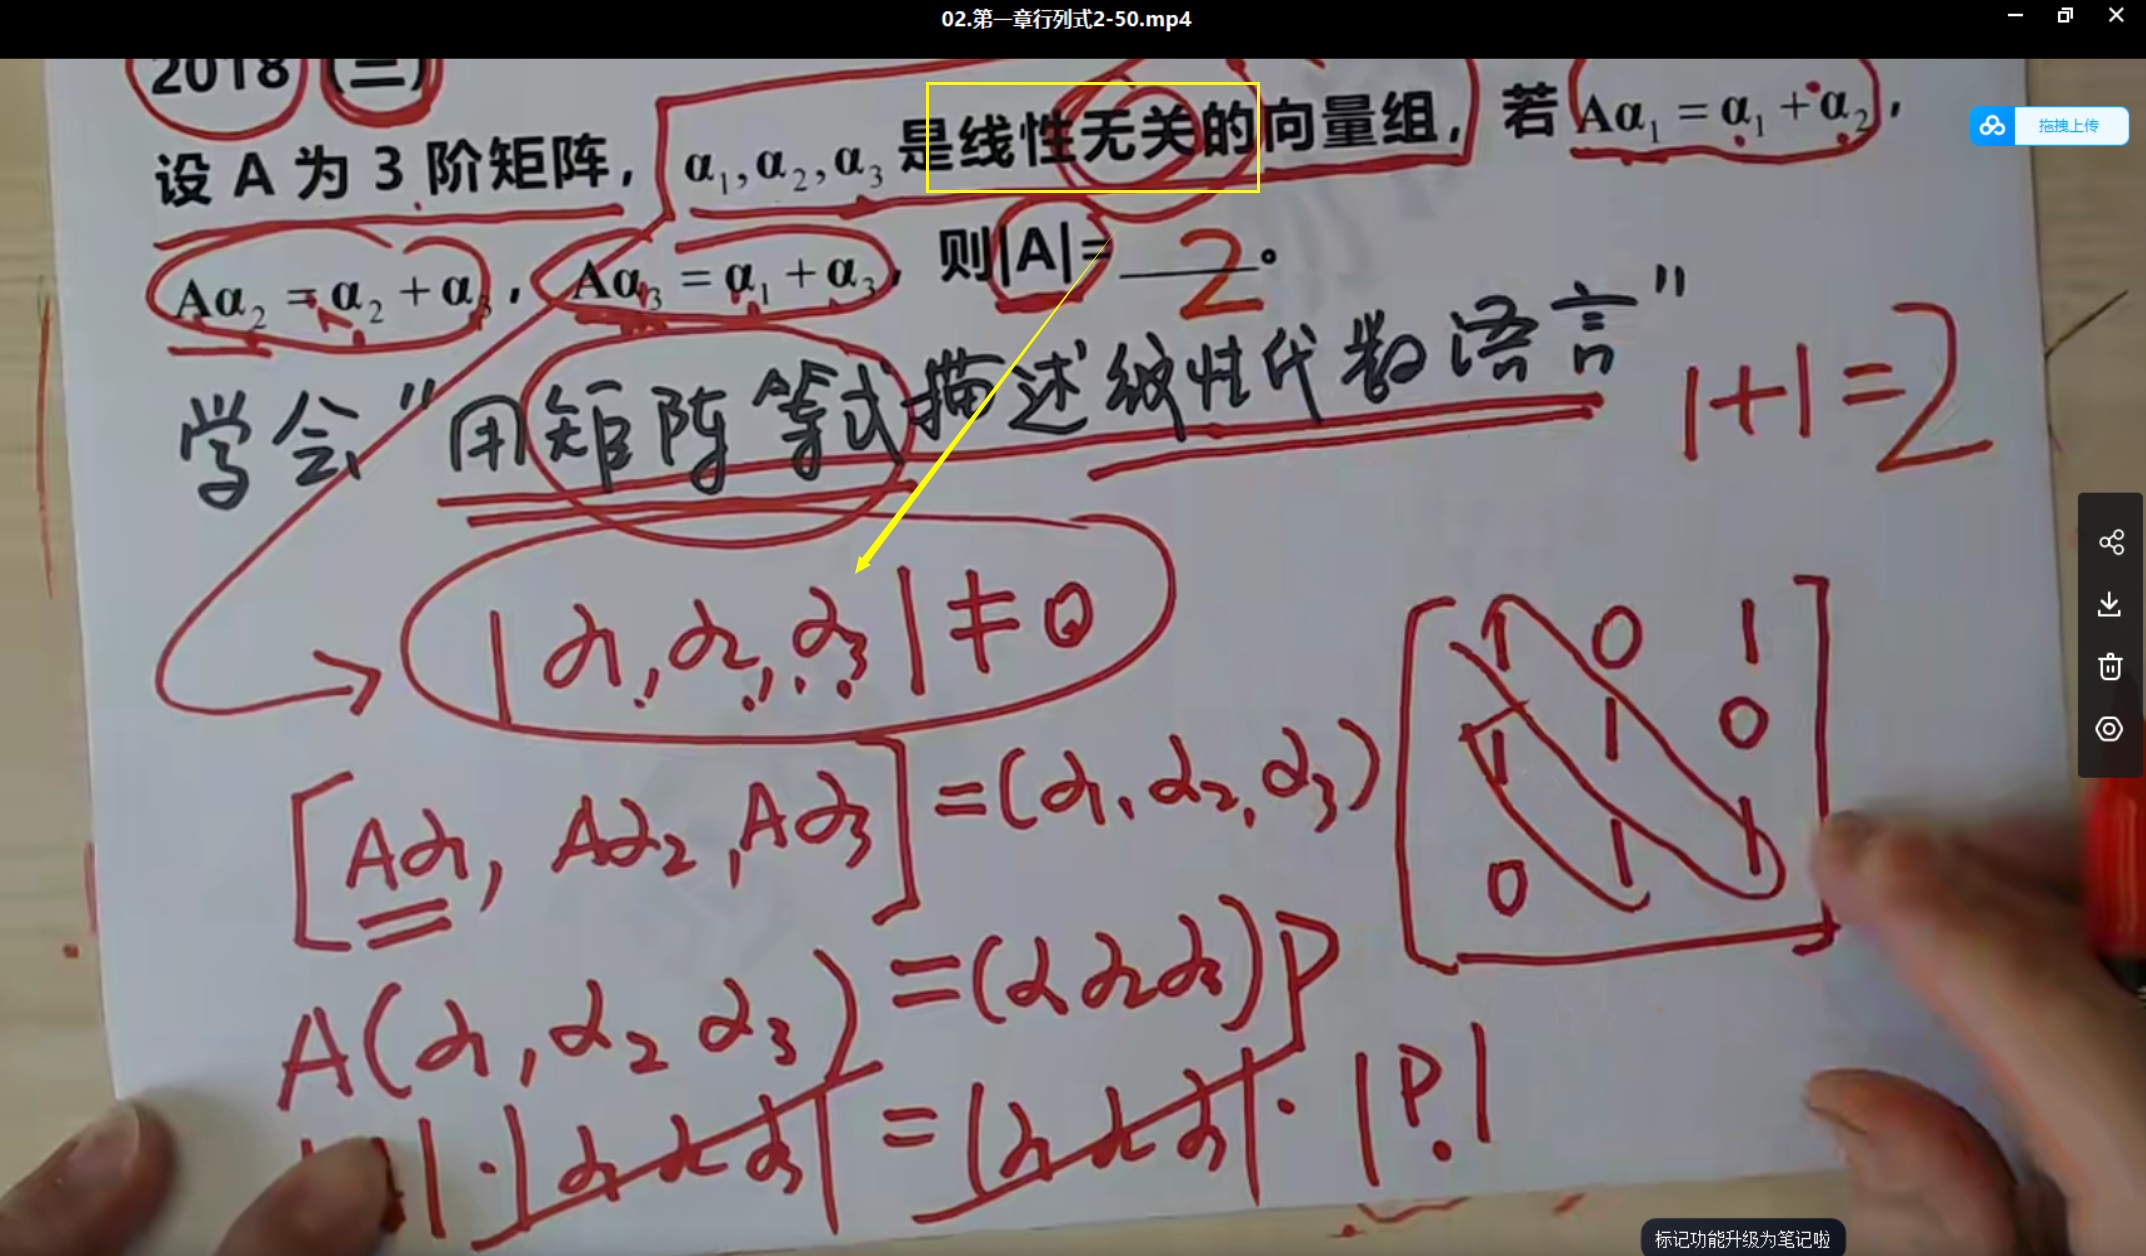 02.第一章行列式2-50.mp4
2018 (三)
设 A 为 3 阶矩阵, α₁,α₂,α₃ 是线性无关的向量组, 若 Aα₁ = α₁ + α₂,
Aα₂ = α₂ + α₃, Aα₃ = α₁ + α₃, 则|A|= 2 。
拖拽上传
学会"用矩阵等式描述线性代数语言"
1+1=2
|α₁,α₂,α₃| ≠ 0
[Aα₁, Aα₂, Aα₃] = (α₁, α₂, α₃) [1 0 1
1 1 0
0 1 1]
A(α₁, α₂ α₃) = (α α₂ α₃) P
| · |α₁ α α₃| = |α₁ α α₃| · |P|
标记功能升级为笔记啦